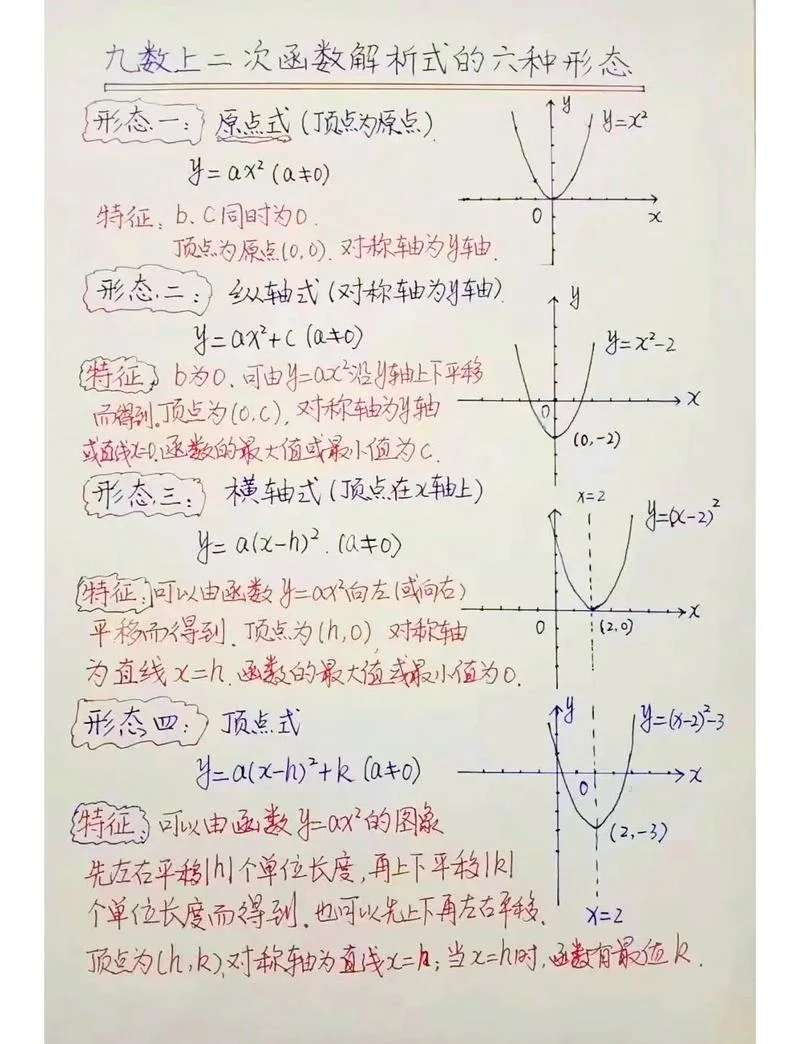 九数上二次函数解析式的六种形态
形态一：原点式(顶点为原点).
y=ax²(a≠0)
特征：b、c同时为0.
顶点为原点(0,0).对称轴为y轴.
y
y=x²
0
x
形态二：纵轴式(对称轴为y轴).
y=ax²+c(a≠0)
特征：b为0.可由y=ax²沿y轴上下平移
而得到.顶点为(0,c),对称轴为y轴
或直线x=0.函数的最大值或最小值为c.
y
y=x²-2
x
0
(0,-2)
形态三：横轴式(顶点在x轴上)
y=a(x-h)².(a≠0)
特征：可以由函数y=ax²向左(或向右)
平移而得到.顶点为(h,0),对称轴
为直线x=h.函数的最大值或最小值为0.
x=2
y=(x-2)²
x
0
(2,0)
形态四：顶点式
y=a(x-h)²+k(a≠0)
特征：可以由函数y=ax²的图象
先左右平移|h|个单位长度,再上下平移|k|
个单位长度而得到.也可以先上下再左右平移.
顶点为(h,k),对称轴为直线x=h;当x=h时,函数有最值k.
y
y=(x-2)²-3
x
0
(2,-3)
x=2